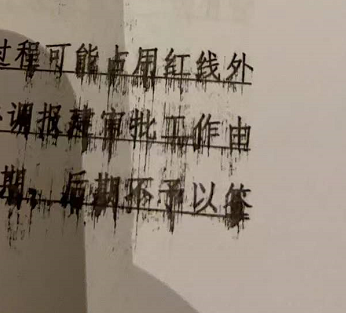 过程可能占用红线外
调报建审批工作由
期，后期不予以签